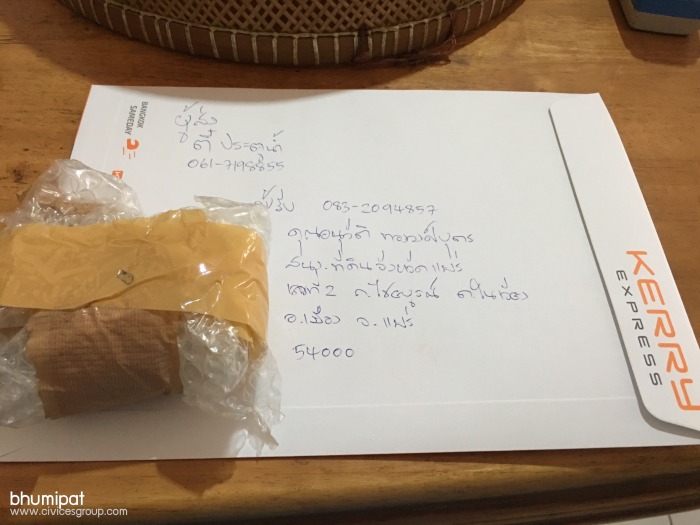 BANGKOK
SAMEDAY
ผู้ส่ง
ตี๋ ประตูน้ำ
061-7198855
ผู้รับ 083-2094857
คุณอนุวัติ
สนง.ที่ดินจังหวัดแพร่
เลขที่ 2 ถ.ไชยบูรณ์ ต.ในเวียง
อ.เมือง จ.แพร่
54000
KERRY
EXPRESS
bhumipat
www.civicesgroup.com